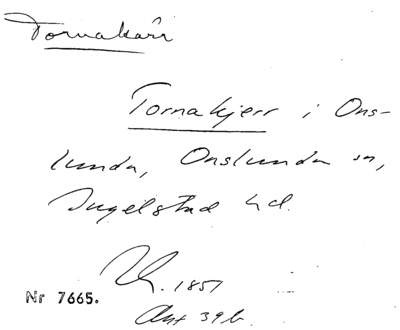 Tornakärr
Tornakjerr i Ons-
lunda, Onslunda sn,
Ingelstad hd.
1857
Nr 7665.
Ant 39 b.